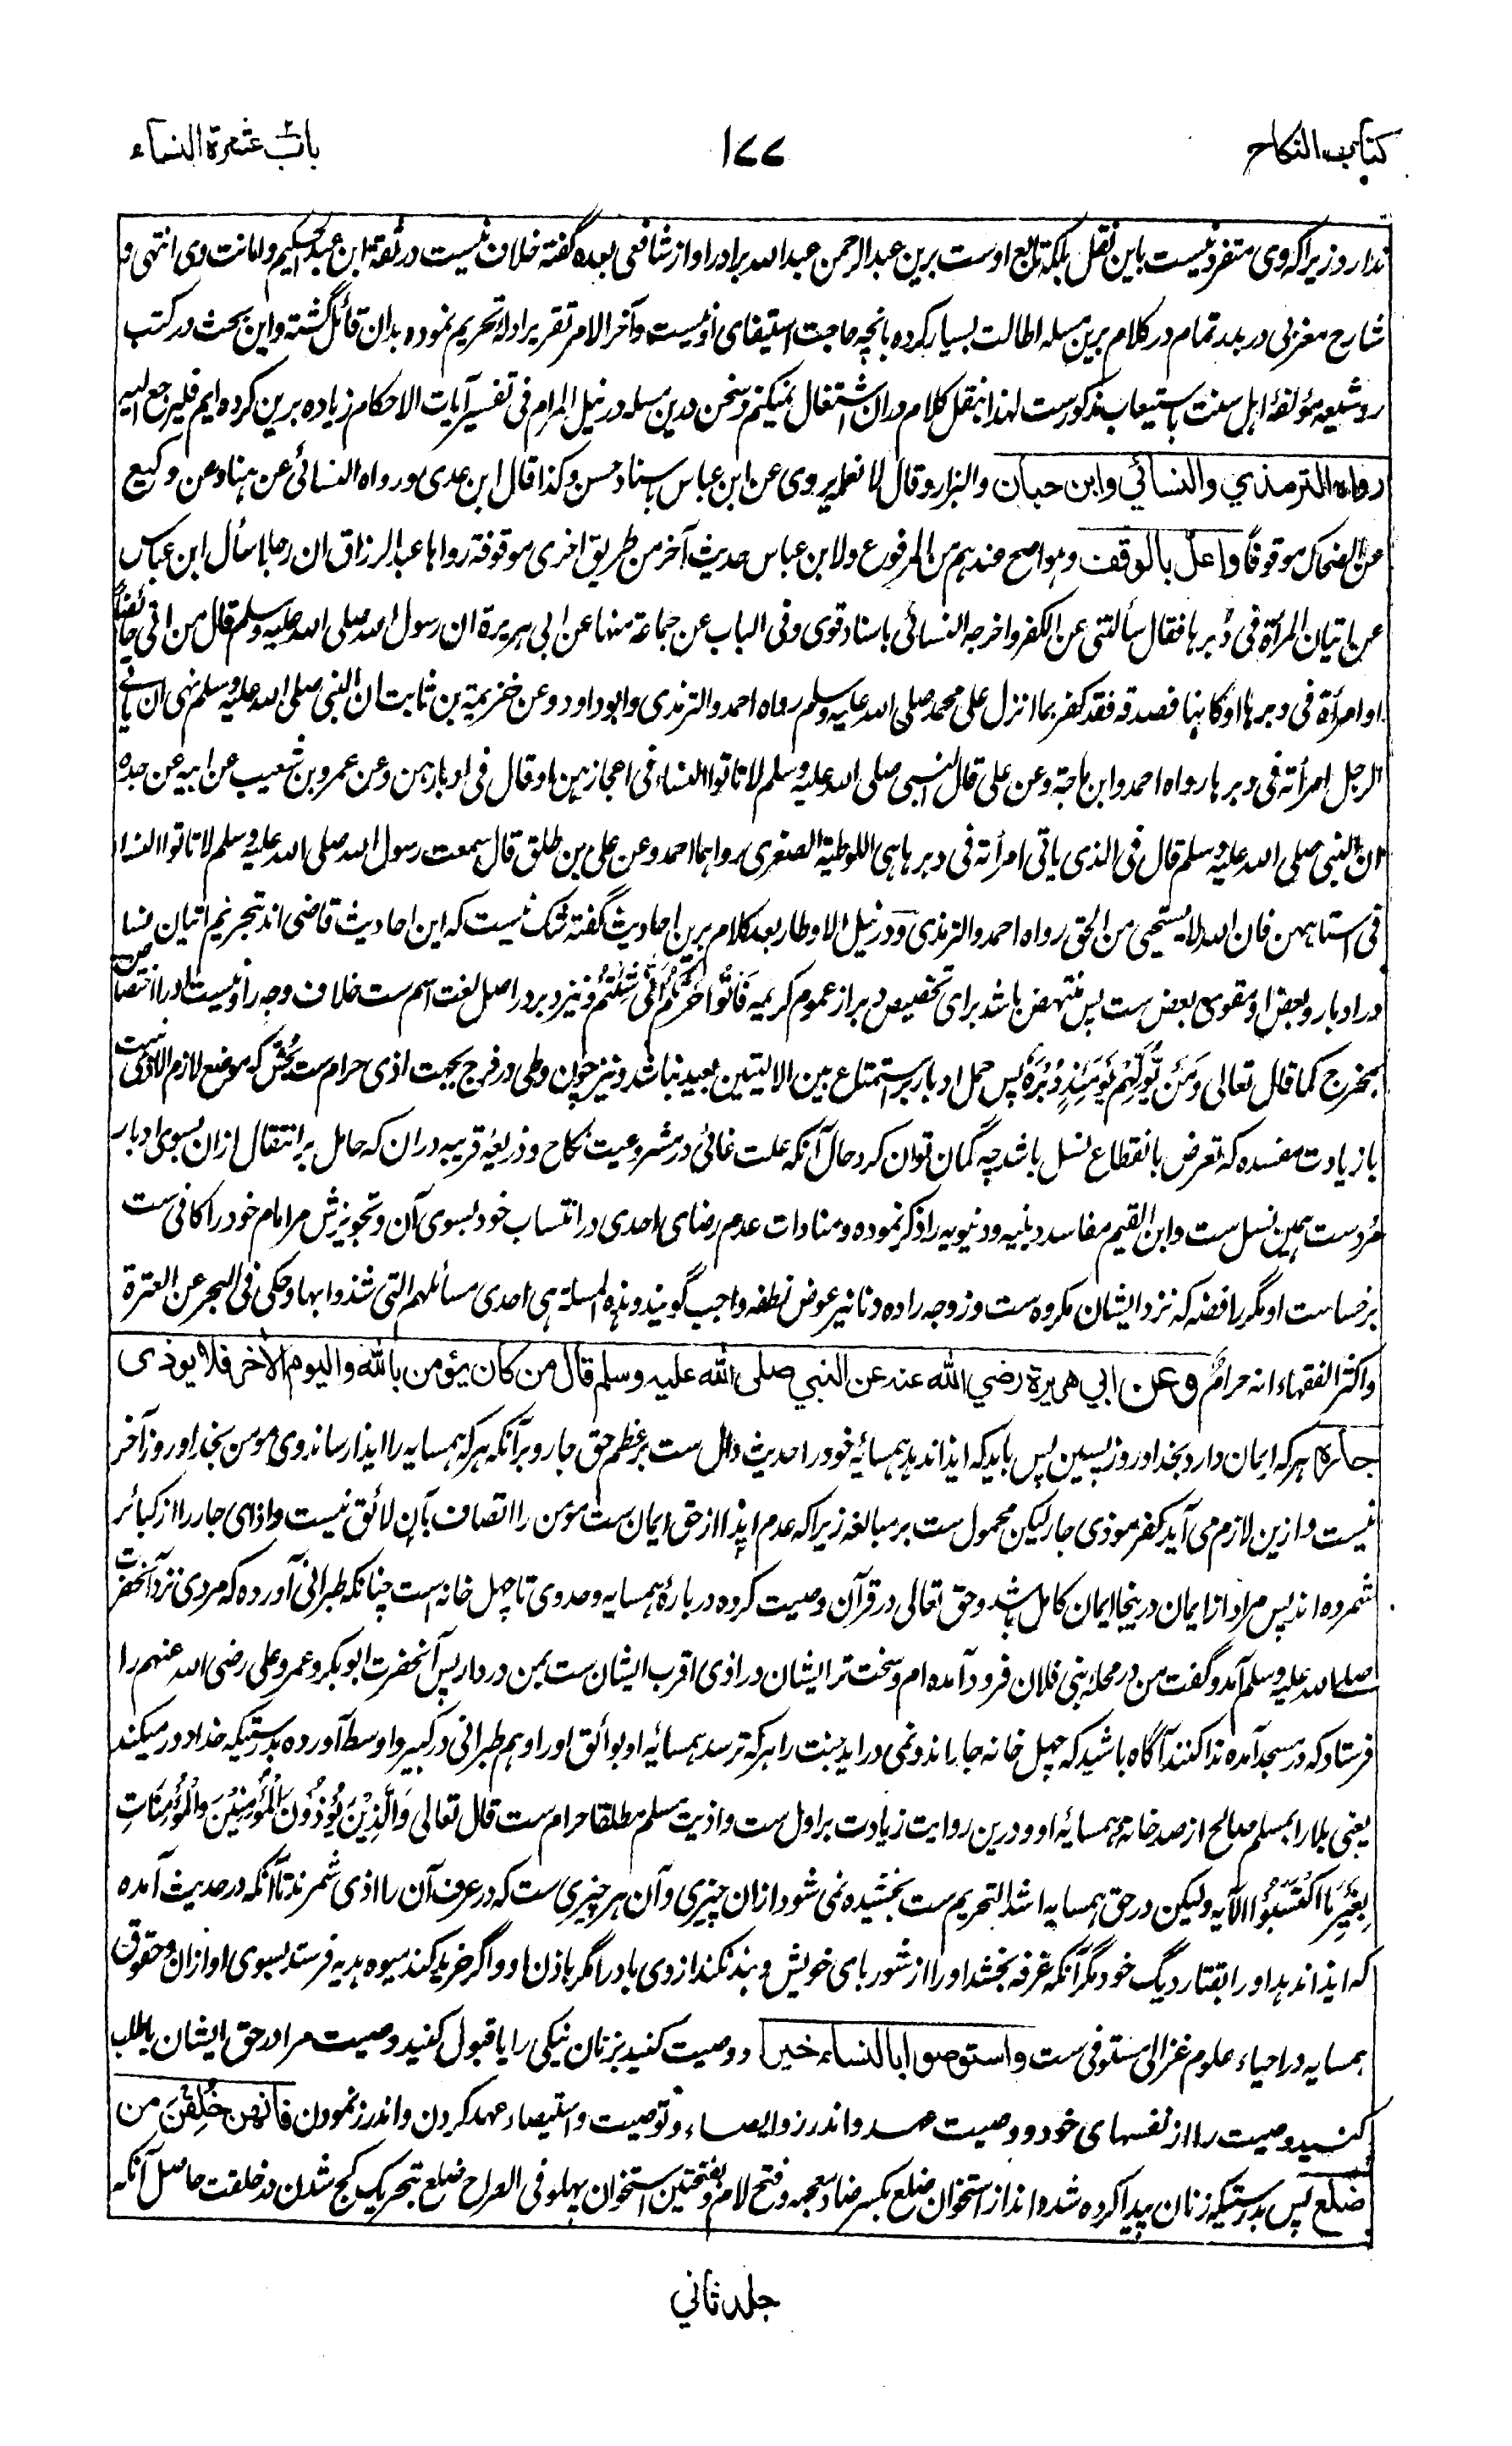 کتاب النکاح
۱۷۷
باب عشرة النساء
ندارد زیراکه وی متفرد نیست باین نقل بلکه تابع اوست برین عبدالرحمن عبدالله برادر او از شافعی بعده گفته خلاف نیست در ثقة ابن عبدالحکیم و امانت وی انتهی و
شارح مغربی در بدر تمام در کلام برین مسله اطالت بسیار کرده بانچه حاجت استیفای او نیست و آخر الامر تقریر ادلۀ تحریم نموده بدان قائل گشته و این بحث در کتب
رد شیعه مؤلفۀ اهل سنت باستیعاب مذکورست لهذا بنقل کلام دران اشتغال نمیکنم و سخن درین مسله در نیل المرام فی تفسیر آیات الاحکام زیاده برین کرده ایم فلیرجع الیه
رواه الترمذي والنسائي وابن حبان والبزار وقال لا نعلمه یروی عن ابن عباس باسناد حسن وکذا قال ابن عدی ورواه النسائی عن هناد عن وکیع
عن الضحاک موقوفاً واعل بالوقف وهو اصح عندهم من المرفوع ولابن عباس حدیث آخر من طریق اخری موقوفة رواها عبد الرزاق ان رجلا سأل ابن عباس
عن اتیان المرأة فی دبرها فقال سألتنی عن الکفر واخرجه النسائی باسناد قوی وفی الباب عن جماعة منها عن ابی هریرة ان رسول الله صلی الله علیه وسلم قال من اتی حائضاً
او امرأة فی دبرها او کاهنا فصدقه فقد کفر بما انزل علی محمد صلی الله علیه وسلم رواه احمد والترمذی وابو داود وعن خزیمة بن ثابت ان النبی صلی الله علیه وسلم نهی ان یاتی
الرجل امرأته فی دبرها رواه احمد وابن ماجة وعن علی قال النبی صلی الله علیه وسلم لا تاتوا النساء فی اعجازهن او قال فی ادبارهن وعن عمرو بن شعیب عن ابیه عن جده
ان النبی صلی الله علیه وسلم قال فی الذی یاتی امرأته فی دبرها هی اللوطیة الصغری رواهما احمد وعن علی بن طلق قال سمعت رسول الله صلی الله علیه وسلم لا تاتوا النساء
فی استاههن فان الله لا یستحیی من الحق رواه احمد والترمذی و در نیل الاوطار بعد کلام برین احادیث گفته شک نیست که این احادیث قاضی اند بتحریم اتیان نسا
در ادبار و بعض او مقوی بعض ست پس منتهض باشد برای تخصیص دبر از عموم کریمه فَأْتُوا حَرْثَكُمْ أَنَّى شِئْتُمْ و نیز دبر در اصل لغت اسم ست خلاف وجه را و نیست او را اختصاص
بمخرج کما قال تعالی وَمَنْ یُّوَلِّهِمْ یَوْمَئِذٍ دُبُرَهٗ پس حمل ادبار بر استمتاع بین الالیتین بعید نباشد و نیز چون وطی در فرج بجهت اذی حرام ست حُش که موضع لازم الاذی ست
با زیادت مفسده که تعرض بانقطاع نسل باشد چه گمان توان کرد حال آنکه علت غائی در مشروعیت نکاح و ذریعۀ قریبه دران که حامل بر انتقال ازان بسوی ادبار
مُردست همین نسل ست و ابن القیم مفاسد دینیه و دنیویه را ذکر نموده و منادات عدم رضای احدی در انتساب خود بسوی آن و تجویزش مر امام خود را کافی ست
بر خساست او مگر رافضه که نزد ایشان مکروه ست و زوجه را ده دنانیر عوض نطفه واجب گویند و هذه المسلة هی احدی مسائلهم التی شذوا بها وحکی فی البحر عن العترة
واکثر الفقهاء انه حرام وعن ابي هريرة رضي الله عنه عن النبي صلى الله عليه وسلم قال من كان يؤمن بالله واليوم الآخر فلا يوذى
جاره هرکه ایمان دارد بخدا و روز پسین پس باید که ایذا ندهد همسایۀ خود را حدیث دال ست بر عظم حق جار و بر آنکه هرکه همسایه را ایذا رساند وی مومن بخدا و روز آخر
نیست و ازین لازم می آید کفر موذی جار لیکن محمول ست بر مبالغه زیراکه عدم ایذا از حق ایمان ست مؤمن را اتصاف بآن لائق نیست و اذای جار را از کبائر
شمرده اند پس مراد از ایمان درینجا ایمان کامل باشد و حق تعالی در قرآن وصیت کرده دربارۀ همسایه و حد وی تا چهل خانه است چنانکه طبرانی آورده که مردی نزد آنحضرت
صلی الله علیه وسلم آمد و گفت من در محلۀ بنی فلان فرود آمده ام و سخت تر ایشان در اذی اقرب ایشان ست بمن در دار پس آنحضرت ابوبکر و عمر و علی رضی الله عنهم را
فرستاد که در مسجد آمده ندا کنند آگاه باشید که چهل خانه جار اند و نمی دراید جنت را هرکه ترسد همسایۀ او بوائق او را و هم طبرانی در کبیر و اوسط آورده بدرستیکه خدا دور میکند
یعنی بلا را بمسلم صالح از صد خانۀ همسایۀ او و درین روایت زیادت بر اول ست و اذیت مسلم مطلقا حرام ست قال تعالی وَالَّذِیْنَ یُؤْذُوْنَ الْمُؤْمِنِیْنَ وَالْمُؤْمِنَاتِ
بِغَیْرِ مَا اکْتَسَبُوْا الآیه ولیکن در حق همسایه اشد التحریم ست بخشیده نمی شود ازان چیزی و آن هر چیزی ست که در عرف آن را اذی شمرند تا آنکه در حدیث آمده
که ایذا ندهد او را بقتار دیگ خود مگر آنکه غرفه بخشد او را از شوربای خویش و بند نکند از وی باد را مگر باذن او و اگر خرید کند میوه هدیه فرستد بسوی او ازان و حقوق
همسایه در احیاء علوم غزالی مستوفی ست واستوصوا بالنساء خيرا و وصیت کنید بزنان نیکی را یا قبول کنید وصیت مرا در حق ایشان یا طلب
کنید وصیت را از نفسهای خود و وصیت عهد و اندرز و ایصاء و توصیت و استیصاء عهد کردن و اندرز نمودن فانهن خُلِقْنَ من
ضلع پس بدرستیکه زنان پیدا کرده شده اند از استخوان ضلع بکسر ضاد معجمه و فتح لام و بفتحتین استخوان پهلو فی الصراح ضلع بتحریک کج شدن در خلقت حاصل آنکه
جلد ثاني